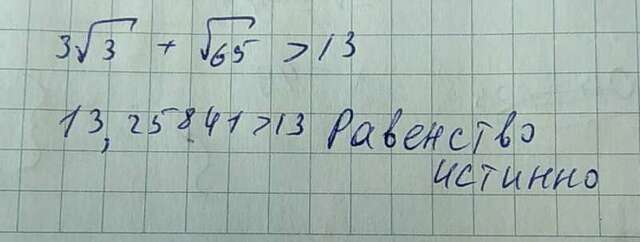 3√3 + √65 > 13
13,25841 > 13 Равенство
истинно